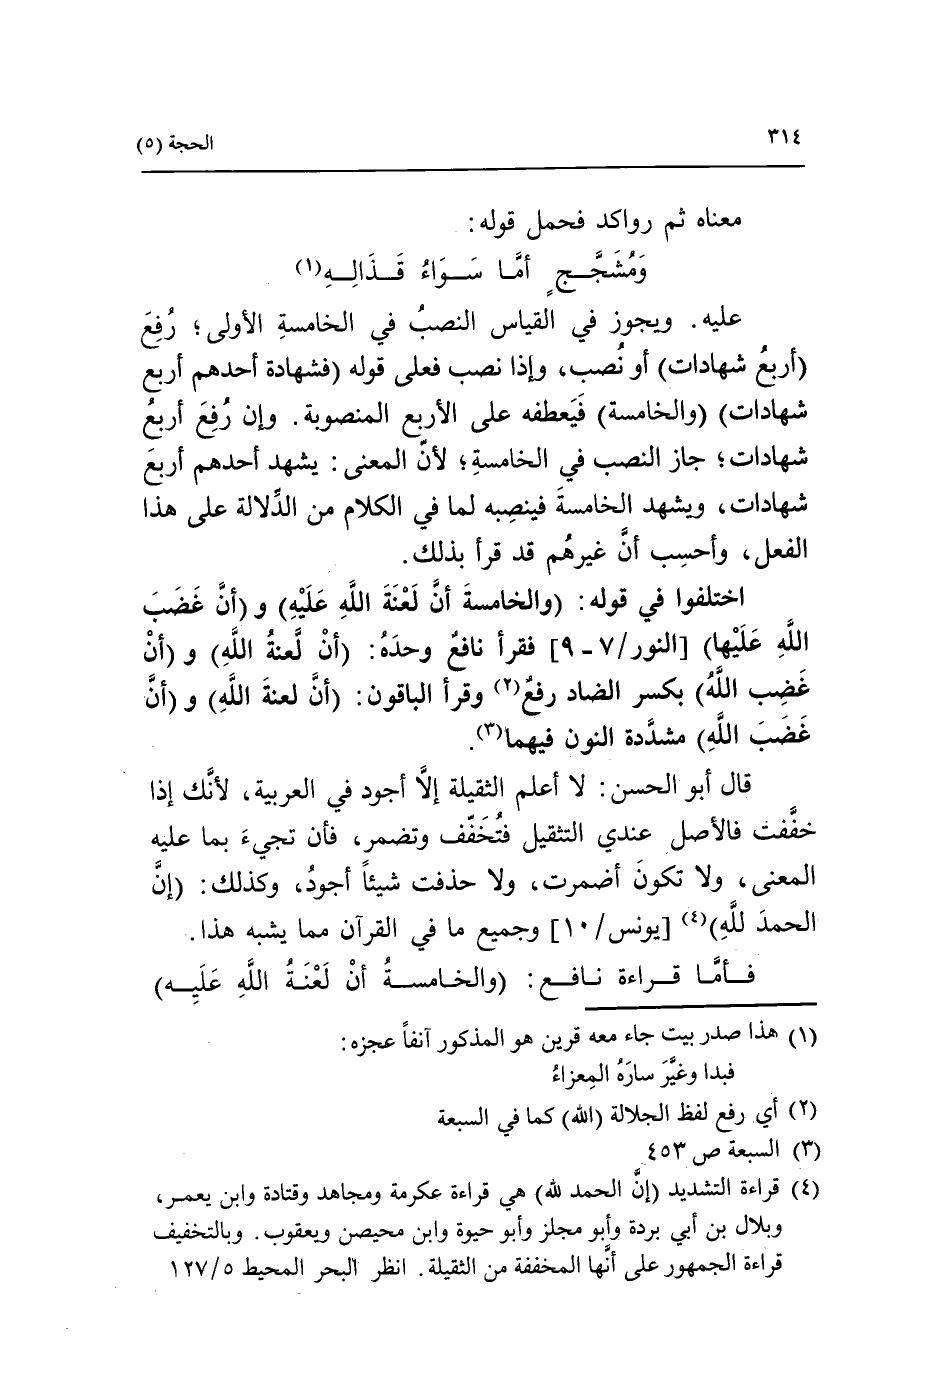 ٣١٤ الحجة (٥)
معناه ثم رواكد فحمل قوله:
وَمُشَجَّجٍ أمَّا سَـوَاءُ قَـذَالِـهِ(١)
عليه. ويجوز في القياس النصبُ في الخامسةِ الأولى؛ رُفِعَ
(أربعُ شهادات) أو نُصب، وإذا نصب فعلى قوله (فشهادة أحدهم أربع
شهادات) (والخامسة) فَيَعطفه على الأربع المنصوبة. وإن رُفِعَ أربعُ
شهادات؛ جاز النصب في الخامسةِ؛ لأنّ المعنى: يشهد أحدهم أربعَ
شهادات، ويشهد الخامسةَ فينصِبه لما في الكلام من الدِّلالة على هذا
الفعل، وأحسِب أنَّ غيرهُم قد قرأ بذلك.
اختلفوا في قوله: (والخامسةَ أنَّ لَعْنَةَ اللَّهِ عَلَيْهِ) و (أنَّ غَضَبَ
اللَّهِ عَلَيْها) [النور/٧ - ٩] فقرأ نافعٌ وحدَهُ: (أنْ لَّعنةُ اللَّهِ) و (أنْ
غَضِب اللَّهُ) بكسر الضاد رفعٌ(٢) وقرأ الباقون: (أنَّ لعنةَ اللَّهِ) و (أنَّ
غَضَبَ اللَّهِ) مشدَّدة النون فيهما(٣).
قال أبو الحسن: لا أعلم الثقيلة إلَّا أجود في العربية، لأنَّك إذا
خفَّفت فالأصل عندي التثقيل فتُخَفّف وتضمر، فأن تجيءَ بما عليه
المعنى، ولا تكونَ أضمرت، ولا حذفت شيئاً أجودُ، وكذلك: (إنَّ
الحمدَ للَّهِ)(٤) [يونس/١٠] وجميع ما في القرآن مما يشبه هذا.
فـأمَّـا قـراءة نـافـع: (والخـامسـةُ أنْ لَعْنَـةُ اللَّهِ عَلَيـهِ)
(١) هذا صدر بيت جاء معه قرين هو المذكور آنفاً عجزه:
فبدا وغيَّرَ سارَهُ المِعزاءُ
(٢) أي رفع لفظ الجلالة (الله) كما في السبعة
(٣) السبعة ص ٤٥٣
(٤) قراءة التشديد (إنَّ الحمد لله) هي قراءة عكرمة ومجاهد وقتادة وابن يعمر،
وبلال بن أبي بردة وأبو مجلز وأبو حيوة وابن محيصن ويعقوب. وبالتخفيف
قراءة الجمهور على أنَّها المخففة من الثقيلة. انظر البحر المحيط ١٢٧/٥